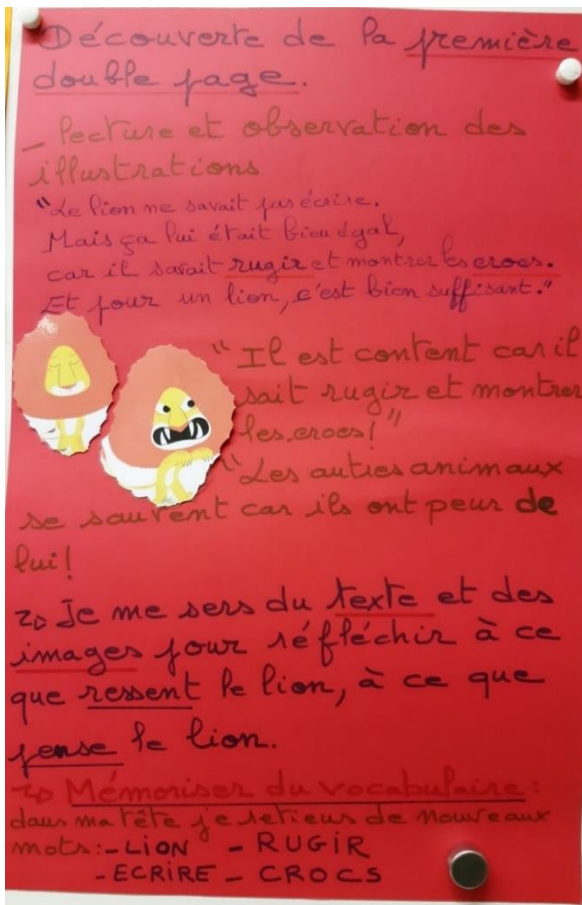 Découverte de la première
double page.
_ lecture et observation des
illustrations
"Le lion ne savait pas écrire.
Mais ça lui était bien égal,
car il savait rugir et montrer les crocs.
Et pour un lion, c'est bien suffisant."
"Il est content car il
sait rugir et montrer
les crocs!"
"Les autres animaux
se sauvent car ils ont peur de
lui!
Je me sers du texte et des
images pour réfléchir à ce
que ressent le lion, à ce que
pense le lion.
Mémoriser du vocabulaire :
dans ma tête je retiens de nouveaux
mots: - LION - RUGIR
- ECRIRE - CROCS